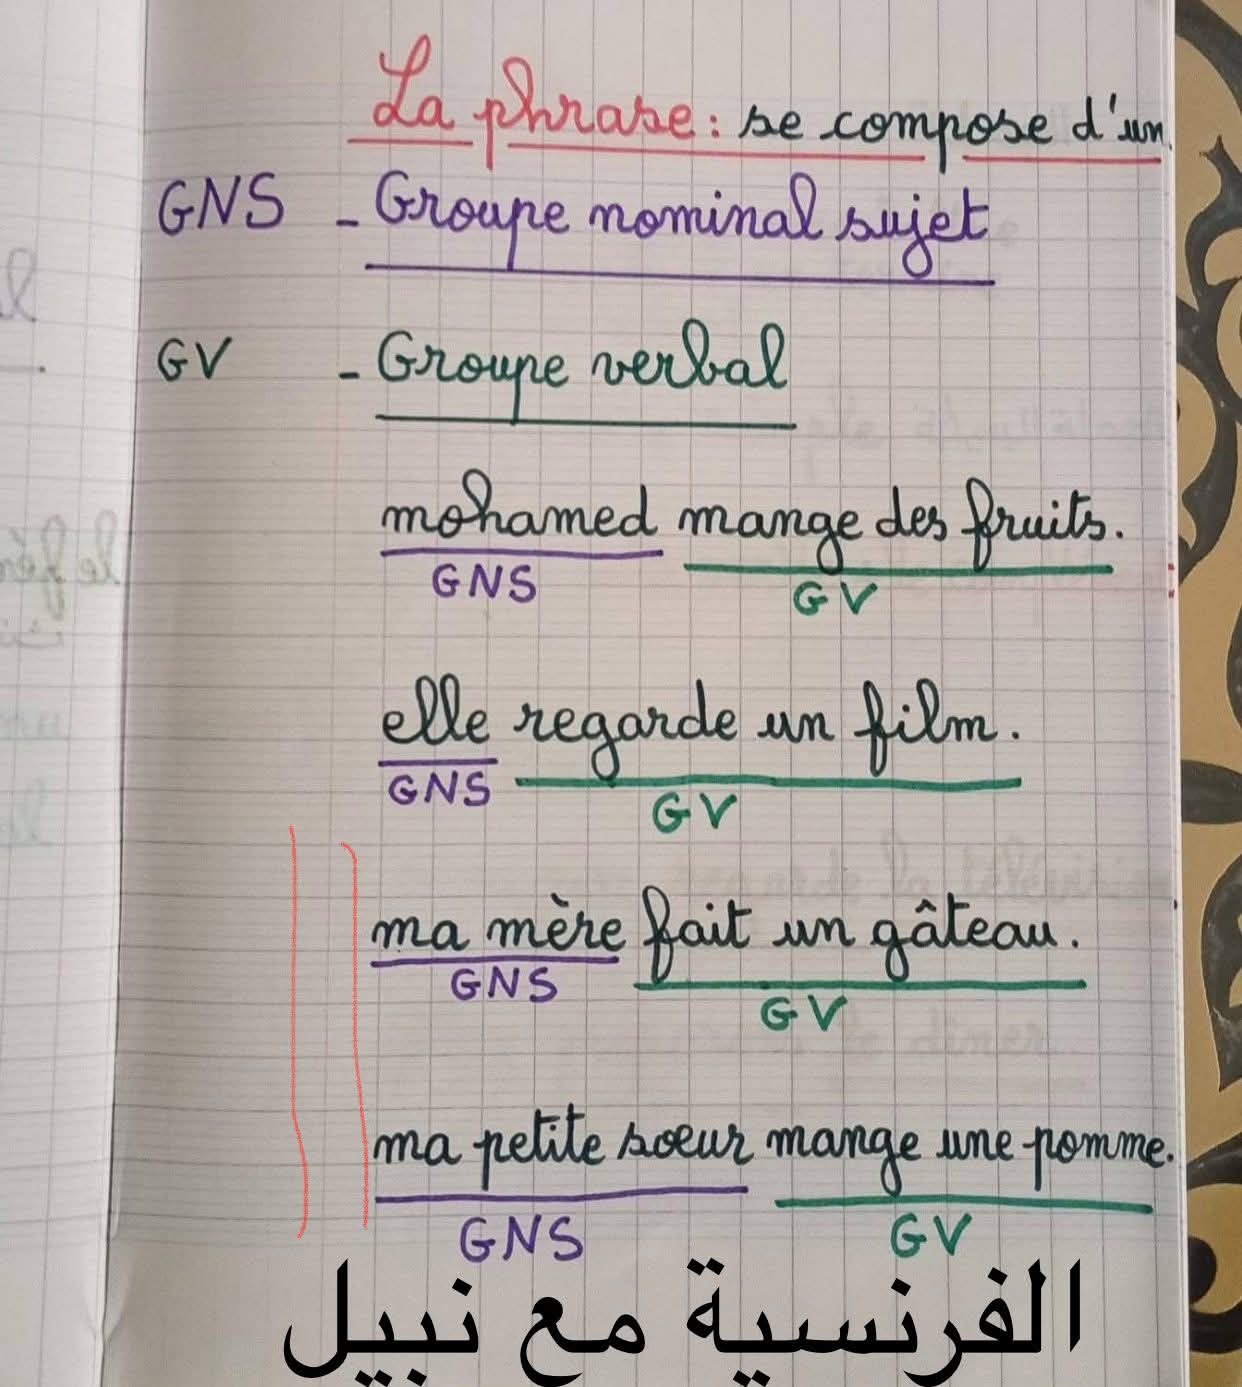 La phrase : se compose d'un
GNS - Groupe nominal sujet
GV - Groupe verbal
mohamed mange des fruits.
GNS GV
elle regarde un film.
GNS GV
ma mère fait un gâteau.
GNS GV
ma petite soeur mange une pomme.
GNS GV
الفرنسية مع نبيل